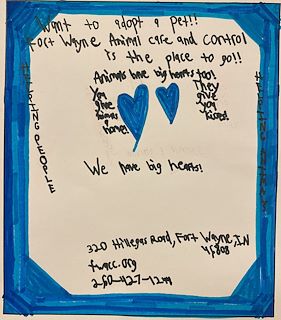 Want to adopt a pet!!
Fort Wayne Animal care and control
is the place to go!!
Animals have big hearts too!
You
give
homes
a
home!
They
give
you
kisses!
HELPING PEOPLE
HELPING
We have big hearts!
3020 Hillegas Road, Fort Wayne, IN
46808
fwacc.org
260-427-1244